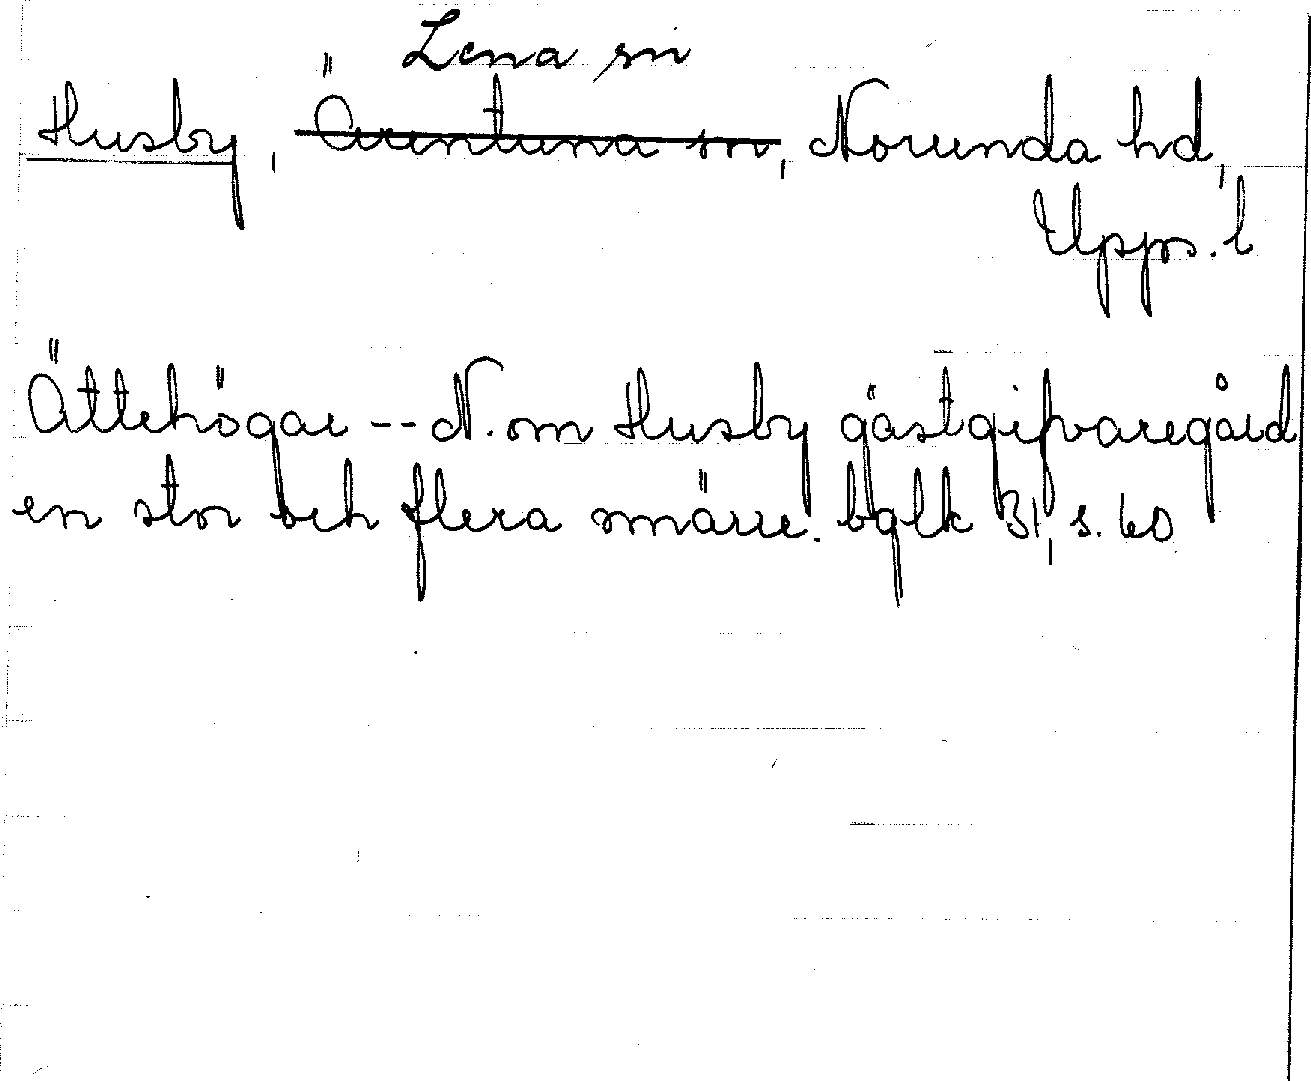 Lena sn
Husby, Ärentuna sn, Norunda hd,
Upps. l
Ättehögar -- N. om Husby gästgifvaregård
en stor och flera smärre. bglk 31, s. 60